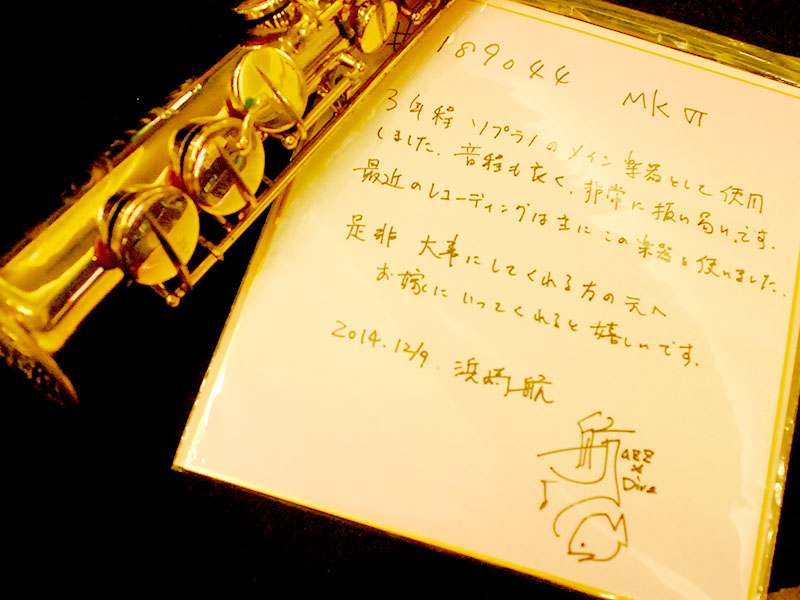 #189044 MK VI
3年程ソプラノのメイン楽器として使用
しました。音程も良く、非常に扱い易いです。
最近のレコーディングは主にこの楽器を使いました。
是非 大事にしてくれる方の元へ
お嫁にいってくれると嬉しいです。
2014.12/9. 浜崎航
航
azz
×
Dive